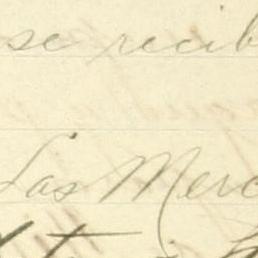 se recib
Las Merc